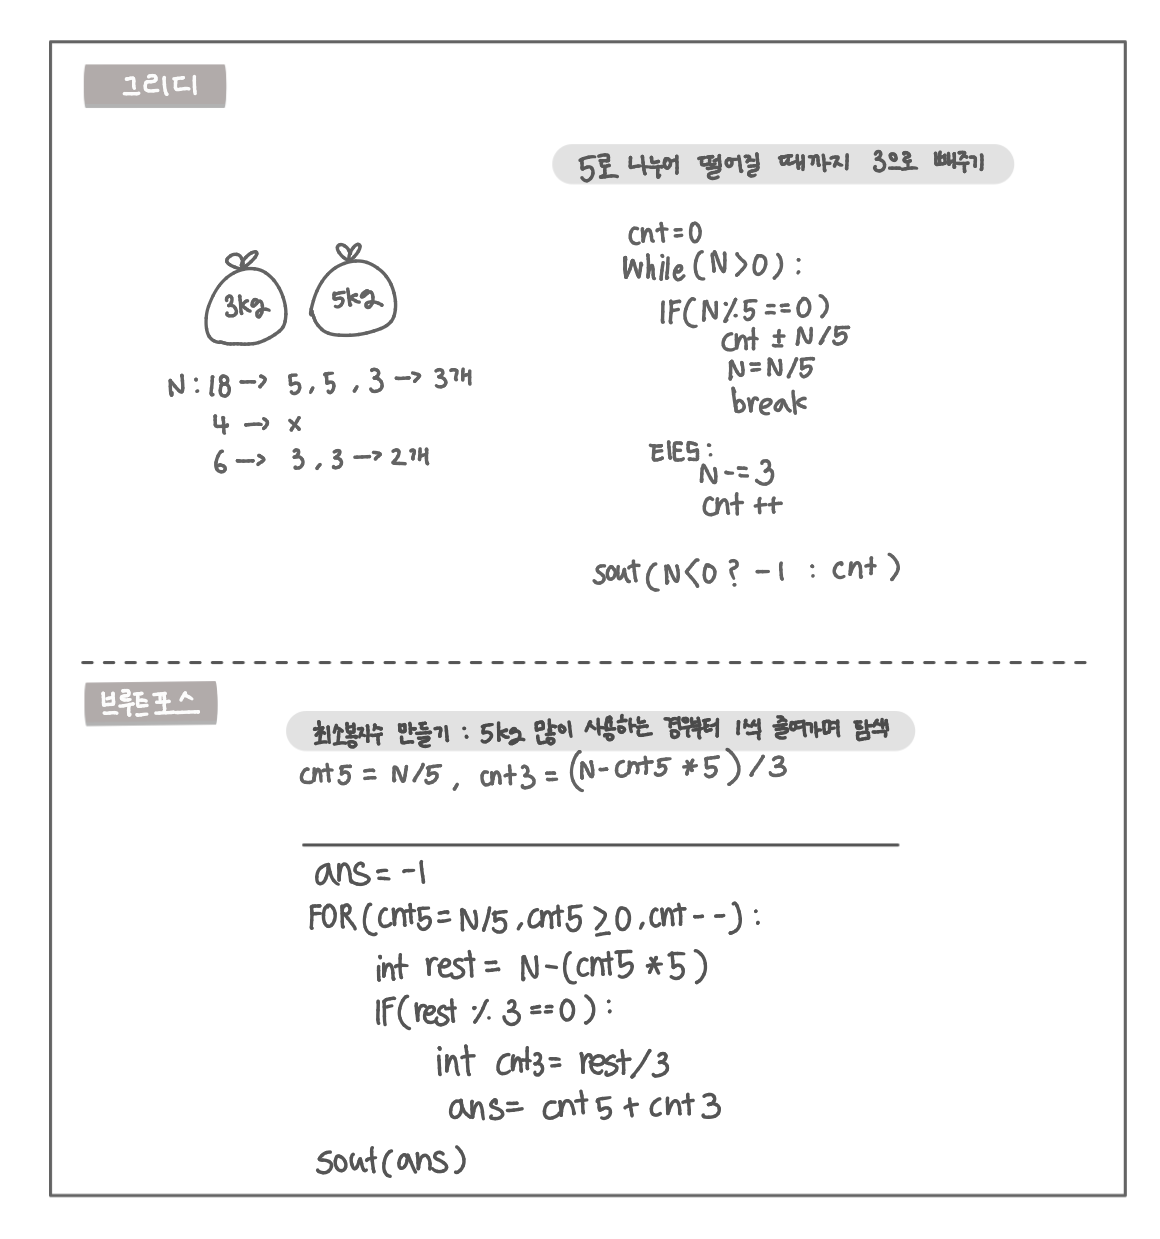 그리디
5로 나누어 떨어질 때까지 3으로 빼주기
3kg
5kg
N:18 → 5, 5, 3 → 3개
4 → x
6 → 3, 3 → 2개
cnt=0
While(N>0):
IF(N%5==0)
cnt ± N/5
N=N/5
break
ElES:
N-=3
cnt ++
sout(N<0 ? -1 : cnt)
브루트포스
최소봉지수 만들기 : 5kg 많이 사용하는 경우부터 1씩 줄여가며 탐색
cnt5 = N/5, cnt3 = (N-cnt5 *5)/3
ans=-1
FOR(cnt5=N/5,cnt5≥0,cnt--):
int rest= N-(cnt5 *5)
IF(rest % 3==0):
int cnt3= rest/3
ans= cnt5+cnt3
sout(ans)